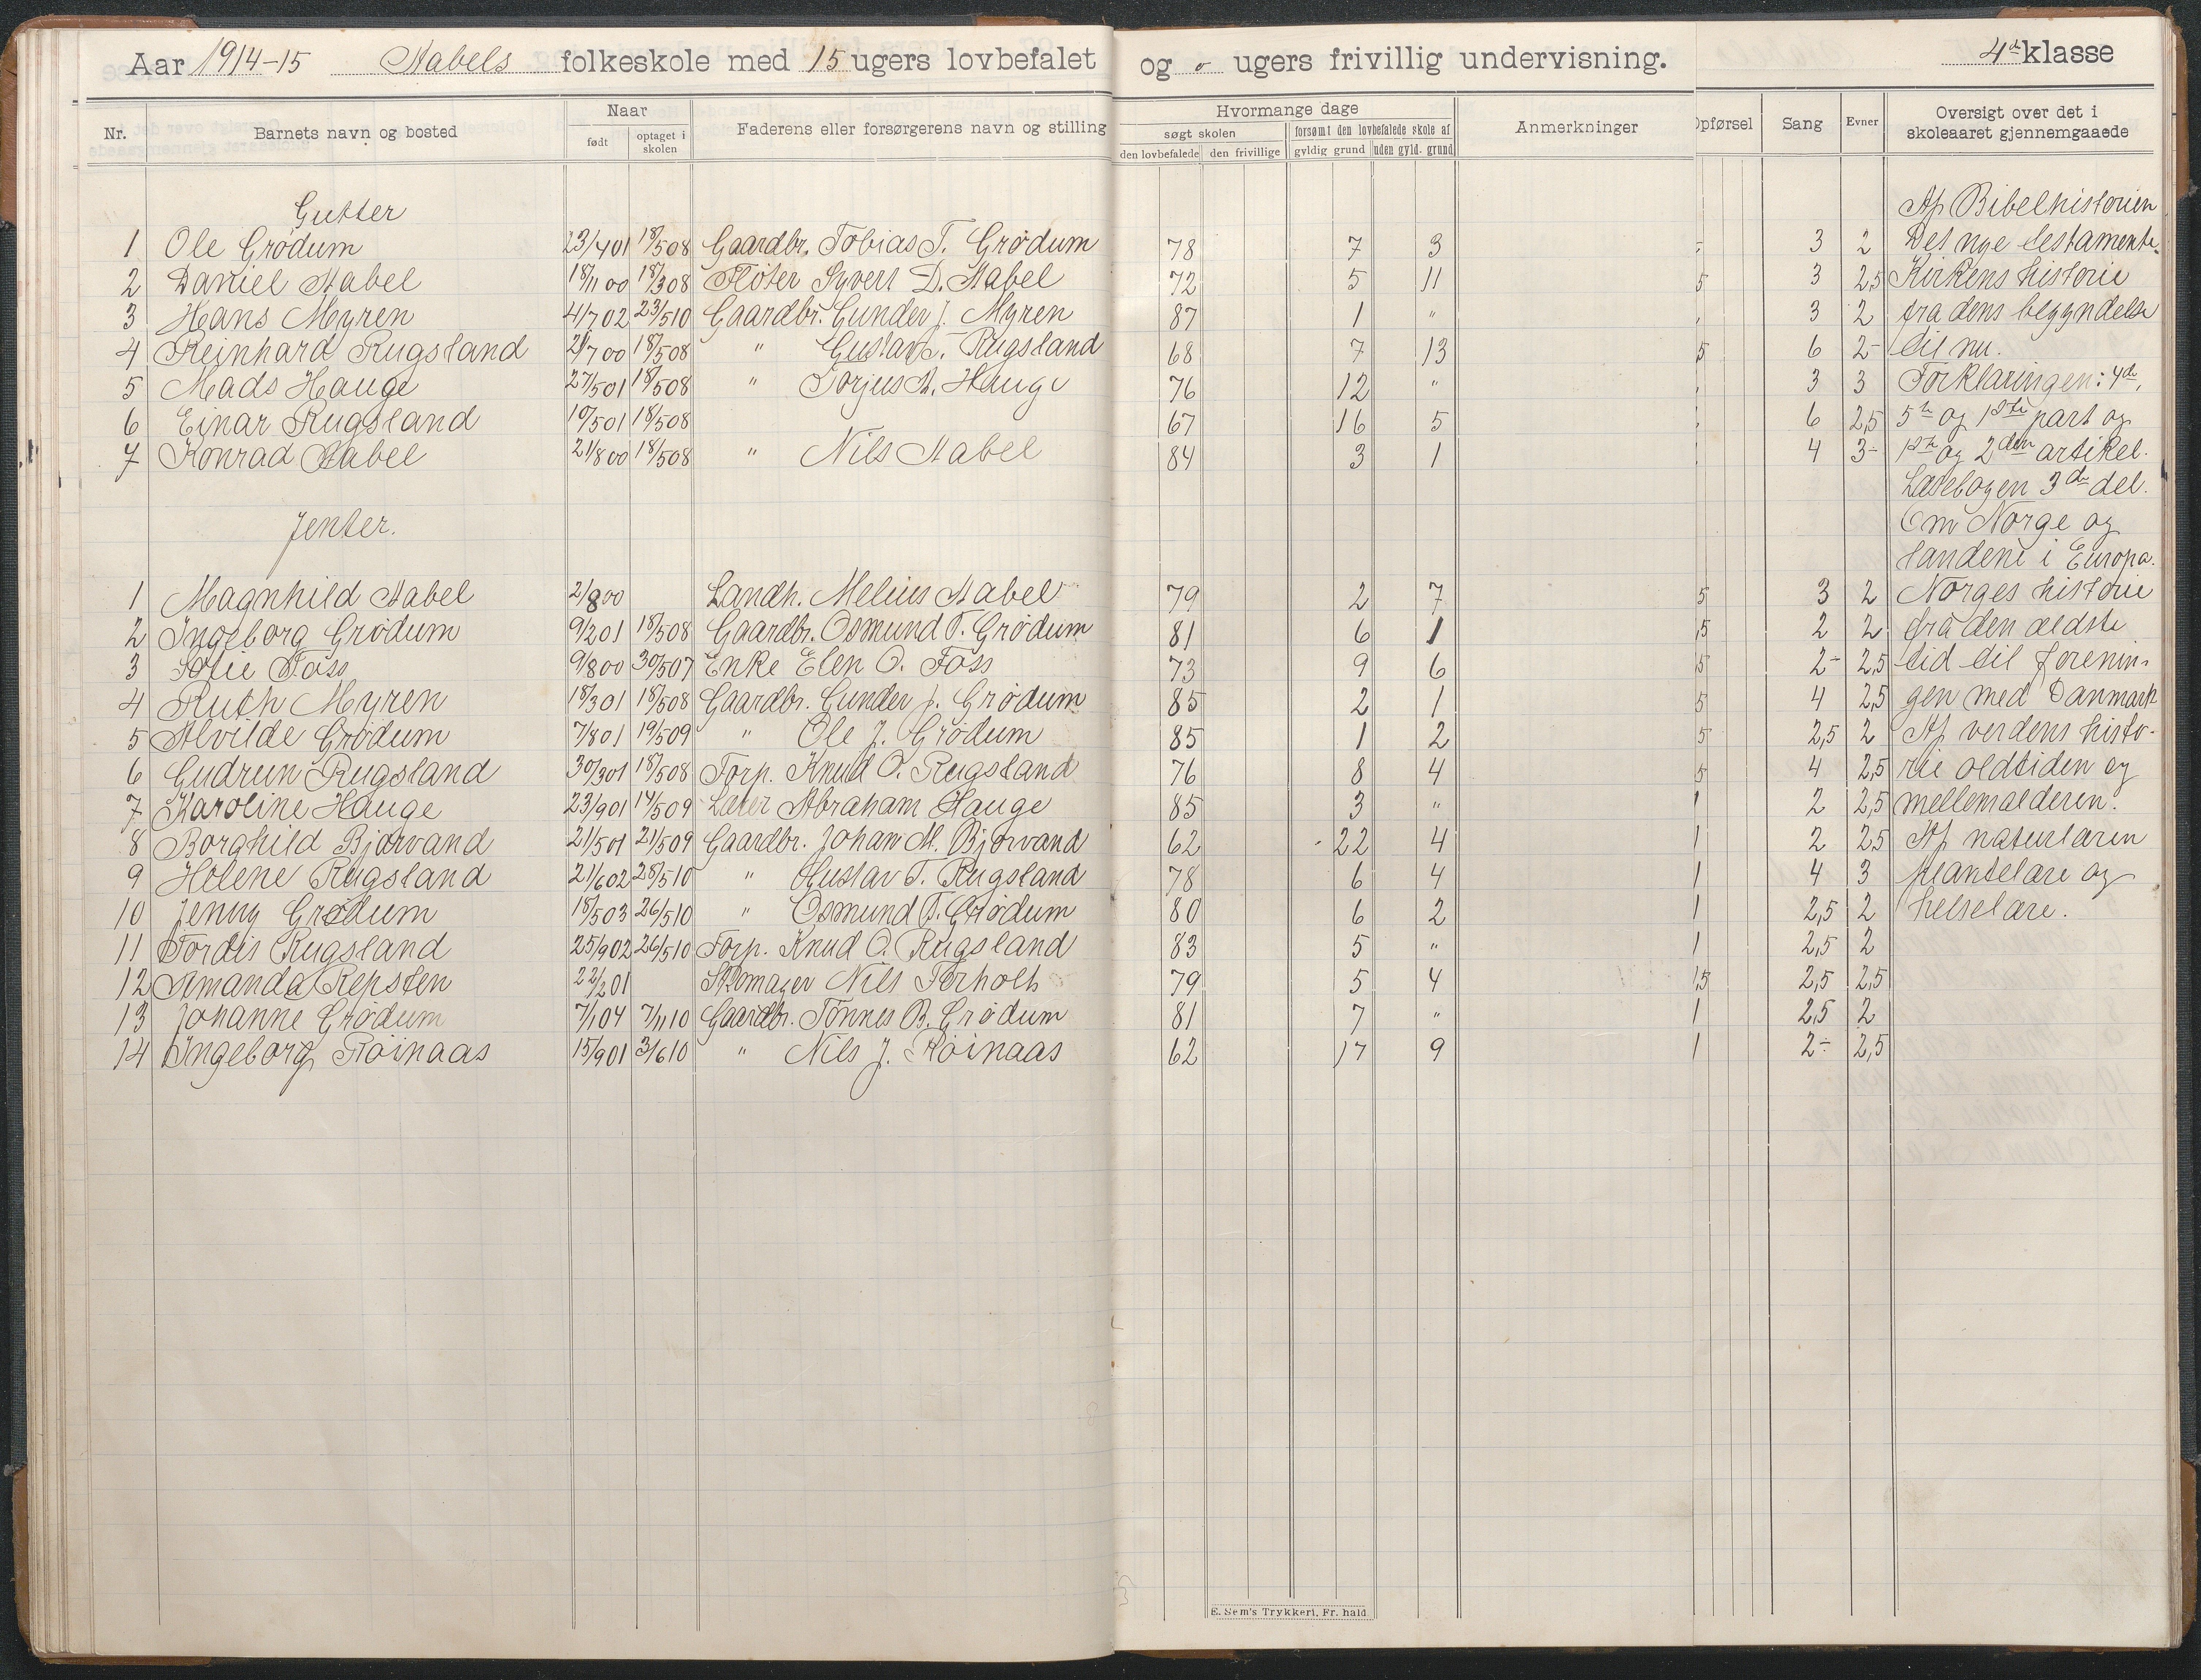 Aar 1914-15 Aabels folkeskole med 15 ugers lovbefalet og 0 ugers frivillig undervisning. 4de klasse
Nr. Barnets navn og bosted Naar født optaget i skolen Faderens eller forsørgerens navn og stilling Hvormange dage søgt skolen den lovbefalede den frivillige forsømt den lovbefalede skole af gyldig grund uden gyld. grund Anmerkninger Opførsel Sang Evner Oversigt over det i skoleaaret gjennemgaaede
Gutter Af Bibelhistorien
1 Ole Grødum 23/4 01 18/5 08 Gaardbr. Tobias T. Grødum 78 7 3 3 2 Det nye testamente.
2 Daniel Aabel 18/11 00 18/3 08 Fløter Syvert D. Aabel 72 5 11 5 3 2,5 Kirkens historie
3 Hans Myren 4/7 02 23/5 10 Gaardbr. Gunder J. Myren 87 1 " 3 2 fra dens begyndelse
4 Reinhard Rugsland 2/7 00 18/5 08 " Gustav T. Rugsland 68 7 13 5 6 2- til nu.
5 Mads Hauge 27/5 01 18/5 08 " Torjus A. Hauge 76 12 " 3 3 Forklaringen: 4de,
6 Einar Rugsland 10/5 01 18/5 08 67 16 5 6 2,5 5te og 1ste part og
7 Konrad Aabel 21/8 00 18/5 08 " Nils Aabel 84 3 1 4 3- 1ste og 2den artikel.
Læsebogen 3de del.
Jenter. Om Norge og
landene i Europa.
1 Magnhild Aabel 2/8 00 Landh. Melius Aabel 79 2 7 5 3 2 Norges historie
2 Ingeborg Grødum 9/2 01 18/5 08 Gaardbr. Osmund T. Grødum 81 6 1 ,5 2 2 fra den ældste
3 Sofie Foss 9/8 00 30/5 07 Enke Elen O. Foss 73 9 6 5 2- 2,5 tid til forenin-
4 Ruth Myren 18/3 01 18/5 08 Gaardbr. Gunder J. Grødum 85 2 1 5 4 2,5 gen med Danmark
5 Alvilde Grødum 7/8 01 19/5 09 " Ole J. Grødum 85 1 2 5 2,5 2 Af verdens histo-
6 Gudrun Rugsland 30/3 01 18/5 08 Forp. Knud O. Rugsland 76 8 4 5 4 2,5 rie oldtiden og
7 Karoline Hauge 23/9 01 14/5 09 Læter Abraham Hauge 85 3 " 1 2 2,5 mellemalderen.
8 Borghild Bjorvand 21/5 01 21/5 09 Gaardbr. Johan M. Bjorvand 62 22 4 1 2 2,5 Af naturlæren
9 Helene Rugsland 21/6 02 28/5 10 " Gustav T. Rugsland 78 6 4 1 4 3 plantelære og
10 Jenny Grødum 18/5 03 26/5 10 " Osmund T. Grødum 80 6 2 1 2,5 2 helselære.
11 Tordis Rugsland 25/9 02 26/5 10 Forp. Knud O. Rugsland 83 5 " 1 2,5 2
12 Amanda Repsten 22/2 01 Skomager Nils Ferholt 79 5 4 1,5 2,5 2,5
13 Johanne Grødum 7/1 04 7/11 10 Gaardbr. Tønnes B. Grødum 81 7 " 1 2,5 2
14 Ingeborg Røinaas 15/9 01 3/6 10 " Nils J. Røinaas 62 17 9 1 2÷ 2,5
E. Sem's Trykkeri, Fr. hald.